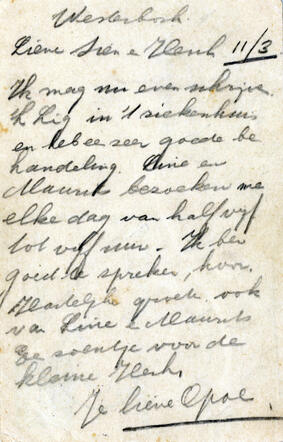 Westerbork.
Lieve Sien e Herh 11/3
Ik mag nu even schrijven.
k Lig in 't ziekenhuis
en heb ee zeer goede be
handeling. Line en
Maurits bezoeken me
elke dag van half vijf
tot vijf uur. Ik ben
goed te spreken, hoor.
Hartelijk groete ook
van Line e Maurits
Ee zoentje voor de
kleine Herh,
Je lieve Opoe.